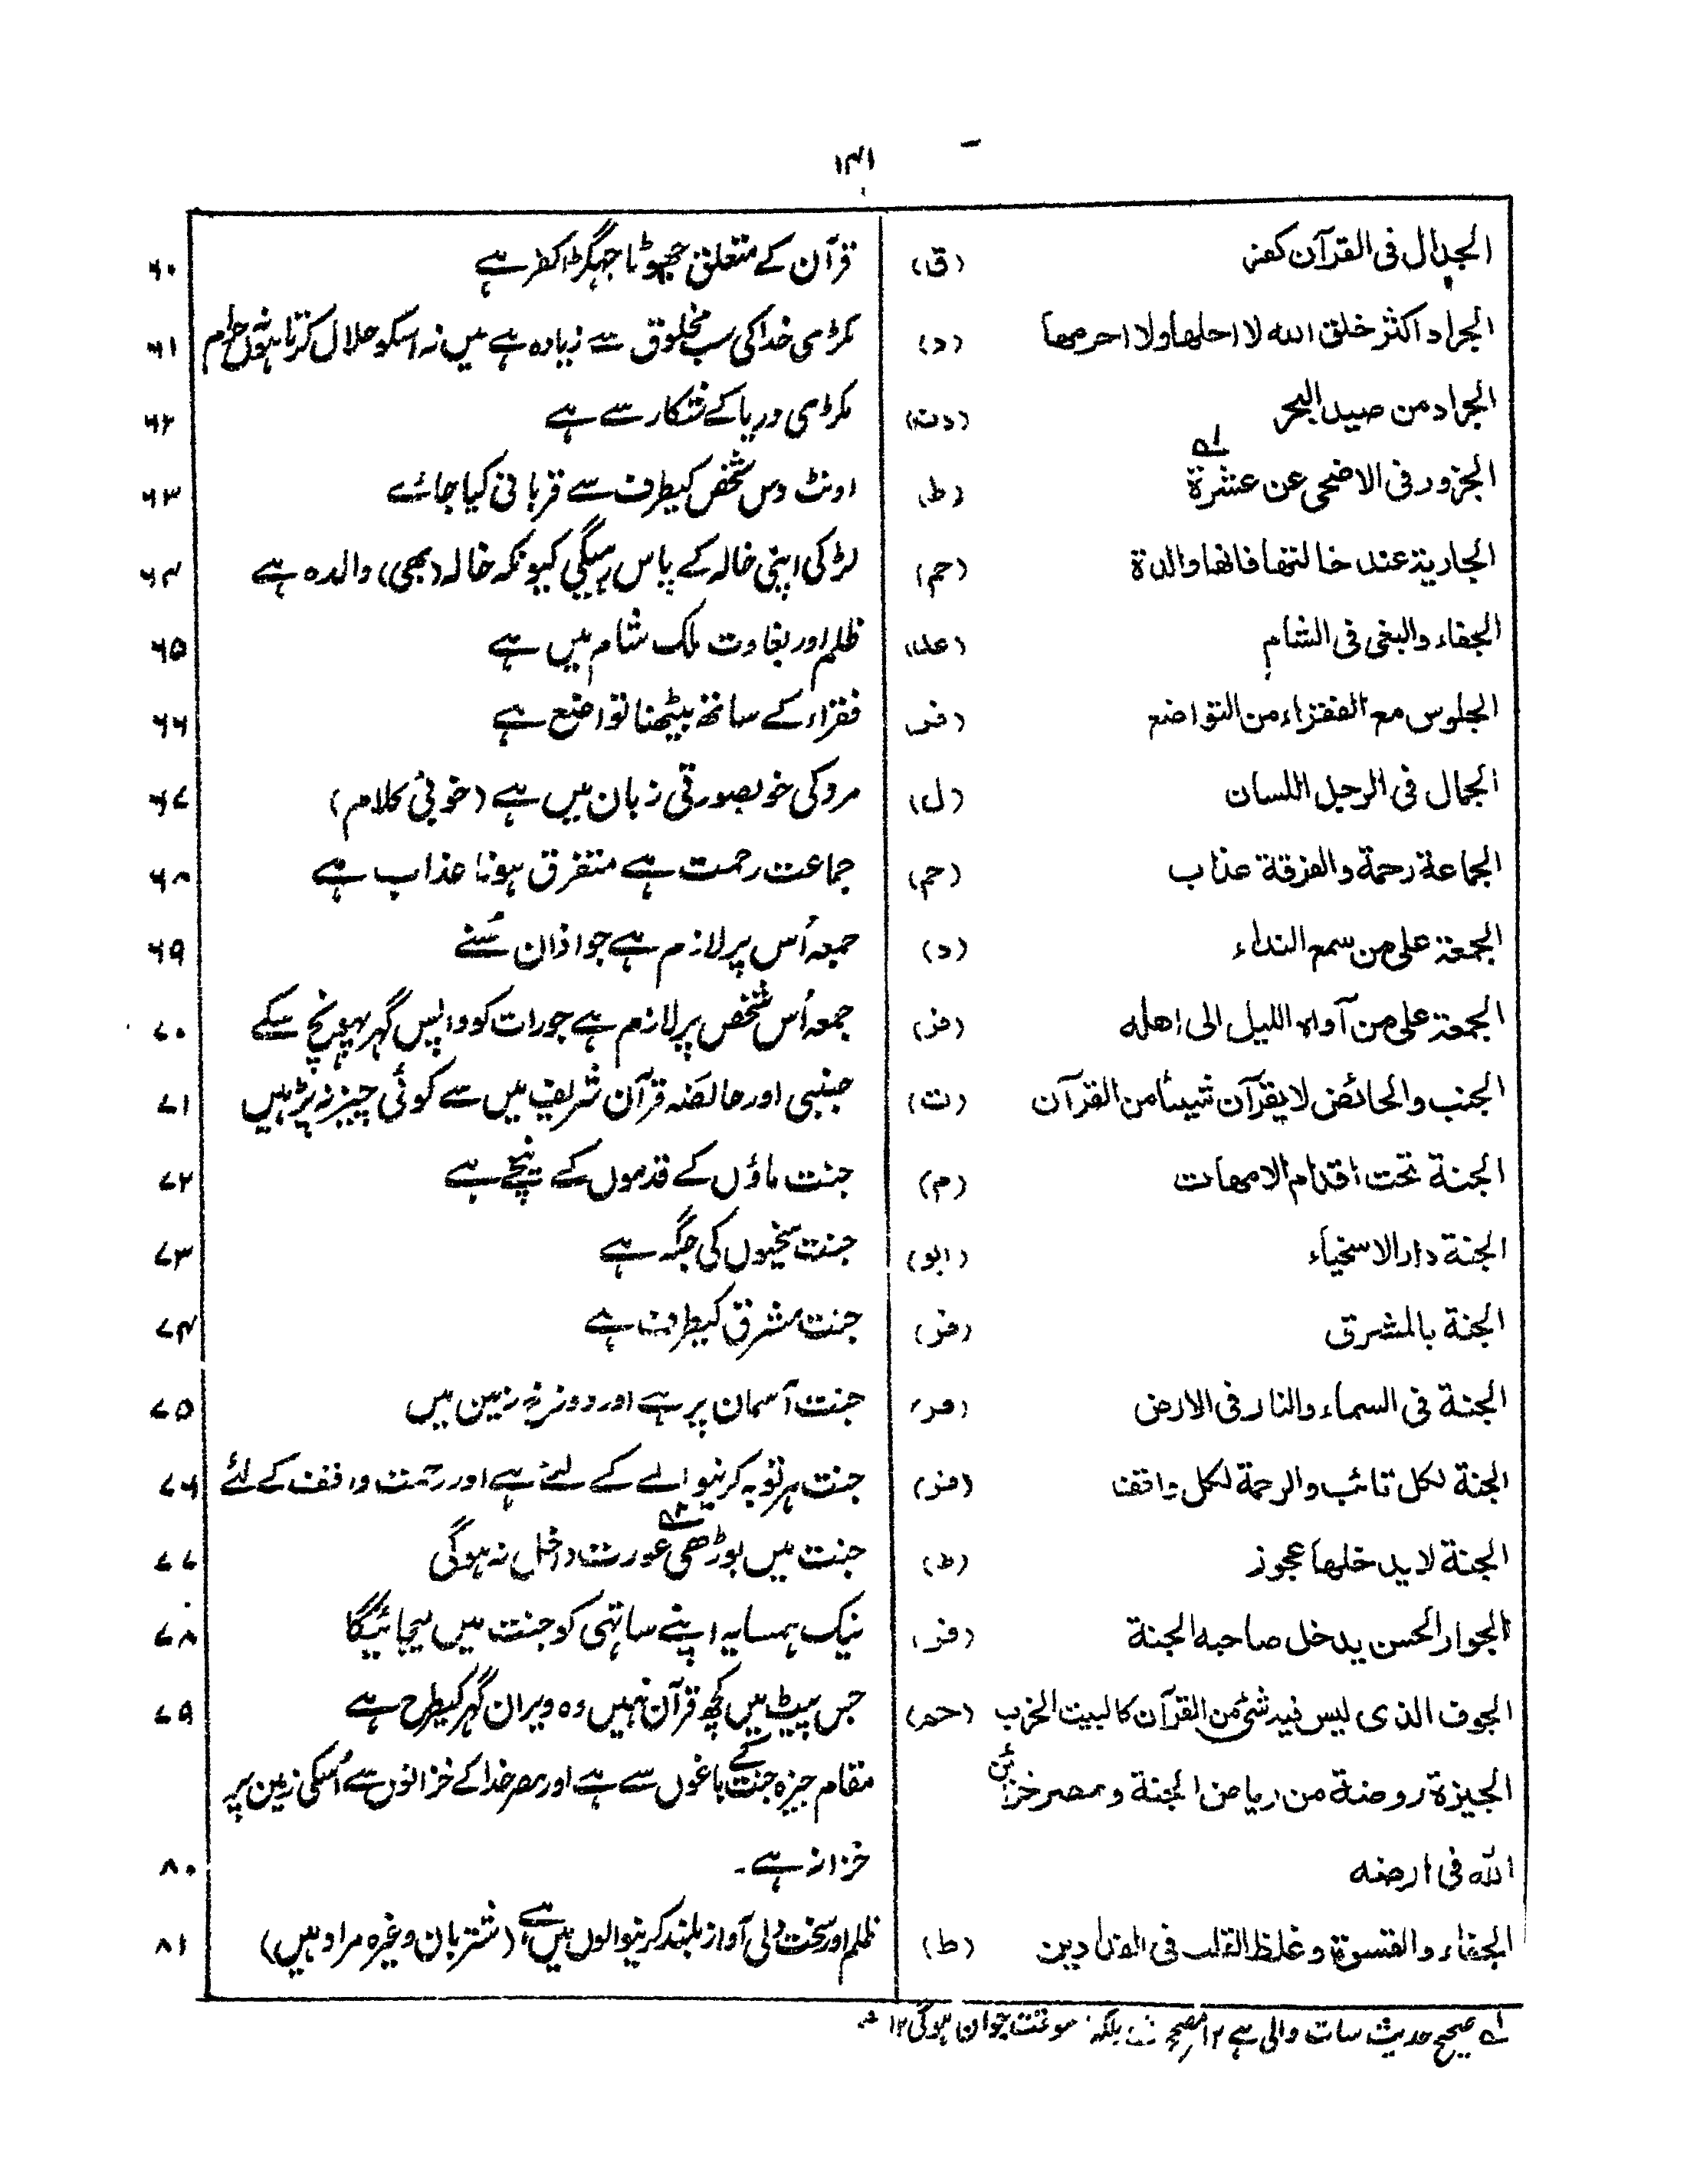 ۱۴۱
الجدال فی القرآن کفر (ق) قرآن کے متعلق جھوٹا جہگڑا کفر ہے ۶۰
الجراد اکثر خلق الله لا احلها ولا احرمها (د) مکڑی خدا کی سب مخلوق سے زیادہ ہے میں نہ اسکو حلال کرتا ہوں نہ حرام ۶۱
الجراد من صید البحر (دت) مکڑی دریا کے شکار سے ہے ۶۲
الجزور فی الاضحی عن عشرة ۱ه (ط) اونٹ دس شخص کیطرف سے قربانی کیا جائے ۶۳
الجاریة عند خالتها فانها والدة (حم) لڑکی اپنی خالہ کے پاس رہیگی کیونکہ خالہ (بھی) والدہ ہے ۶۴
الجفاء والبغی فی الشام (عد) ظلم اور بغاوت ملک شام میں ہے ۶۵
الجلوس مع الفقراء من التواضع (فر) فقراء کے ساتھ بیٹھنا تواضع ہے ۶۶
الجمال فی الرجل اللسان (ل) مرد کی خوبصورتی زبان میں ہے (خوبئ کلام) ۶۷
الجماعة رحمة والفرقة عذاب (حم) جماعت رحمت ہے متفرق ہونا عذاب ہے ۶۸
الجمعة علی من سمع النداء (د) جمعہ اُس پر لازم ہے جو اذان سُنے ۶۹
الجمعة علی من آواه اللیل الی اهله (فر) جمعہ اُس شخص پر لازم ہے جو رات کو واپس گہر پہونچ سکے ۷۰
الجنب والحائض لا یقرآن شیئا من القرآن (ت) جنبی اور حائضہ قرآن شریف میں سے کوئی چیز نہ پڑہیں ۷۱
الجنة تحت اقدام الامهات (م) جنت ماؤں کے قدموں کے نیچے ہے ۷۲
الجنة دار الاسخیاء (ابو) جنت سخیوں کی جگہ ہے ۷۳
الجنة بالمشرق (فر) جنت مشرق کیطرف ہے ۷۴
الجنة فی السماء والنار فی الارض (فر) جنت آسمان پر ہے اور دوزخ زمین میں ۷۵
الجنة لکل تائب والرحمة لکل واقف (فر) جنت ہر توبہ کرنیوالے کے لئے ہے اور رحمت واقف کے لئے ۷۶
الجنة لا یدخلها عجوز (ط) جنت میں بوڑھی عورت داخل نہ ہوگی ۷۷
الجوار الحسن یدخل صاحبه الجنة (فر) نیک ہمسایہ اپنے ساتھی کو جنت میں لیجائیگا ۷۸
الجوف الذی لیس فیه شیٔ من القرآن کالبیت الخرب (حم) جس پیٹ میں کچھ قرآن نہیں وہ ویران گہر کیطرح ہے ۷۹
الجیزة روضة من ریاض الجنة ومصر خزائن مقام جیزہ جنت کے باغوں سے ہے اور مصر خدا کے خزانوں سے اُسکی زمین پر
الله فی ارضه خزانہ ہے۔ ۸۰
الجفاء والقسوة وغلظ القلب فی الفدادین (ط) ظلم اور سخت دلی آواز بلند کرنیوالوں میں ہے (شتربان وغیرہ مراد ہیں) ۸۱
۱ه صحیح حدیث سات والی ہے ۱۲ مصحح بلکہ جوان ہوگی ۱۲